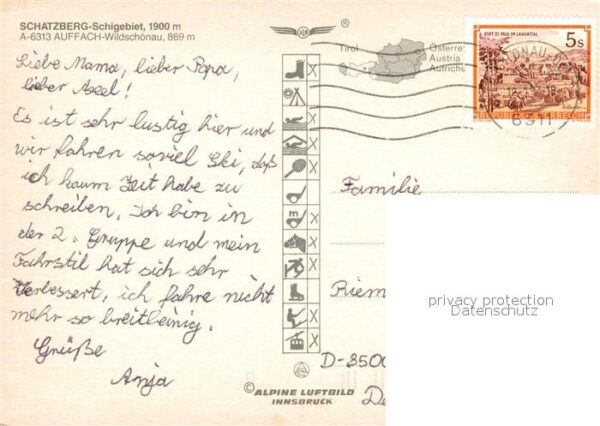 SCHATZBERG-Schigebiet, 1900 m
A-6313 AUFFACH-Wildschönau, 869 m
®
Tirol
Österre
Austria
Autriche
STIFT ST. PAUL IM LAVANTTAL
5s
REPUBLIK ÖSTERREICH
6311
Liebe Mama, lieber Papa,
lieber Axel!
Es ist sehr lustig hier und
wir fahren soviel Ski, daß
ich kaum Zeit habe zu
schreiben. Ich bin in
der 2. Gruppe und mein
Fahrstil hat sich sehr
verbessert, ich fahre nicht
mehr so breitbeinig.
Grüße
Anja
Familie
Riem
D-8500
© ALPINE LUFTBILD
INNSBRUCK
privacy protection
Datenschutz